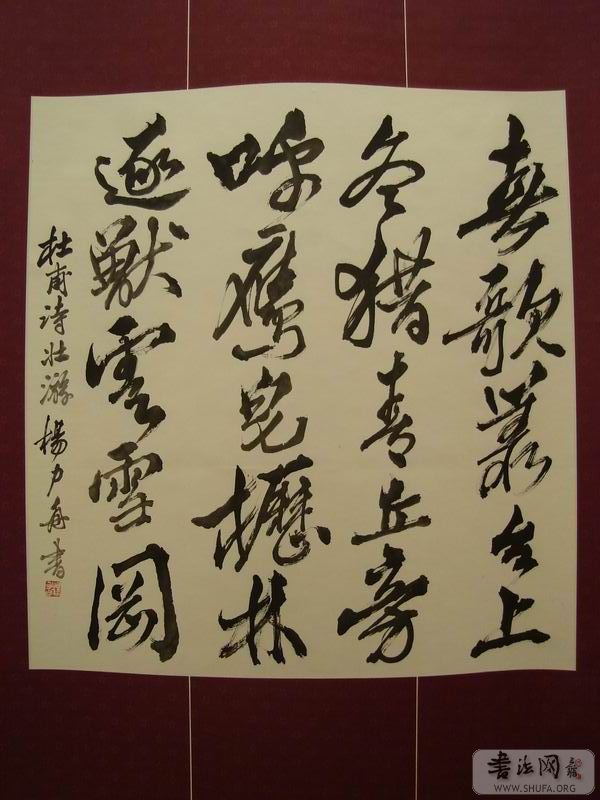 春歌叢台上
冬猎青丘旁
呼鹰皂櫪林
逐獸雲雪岡
杜甫诗壮游 楊力舟書
書法网
WWW.SHUFA.ORG